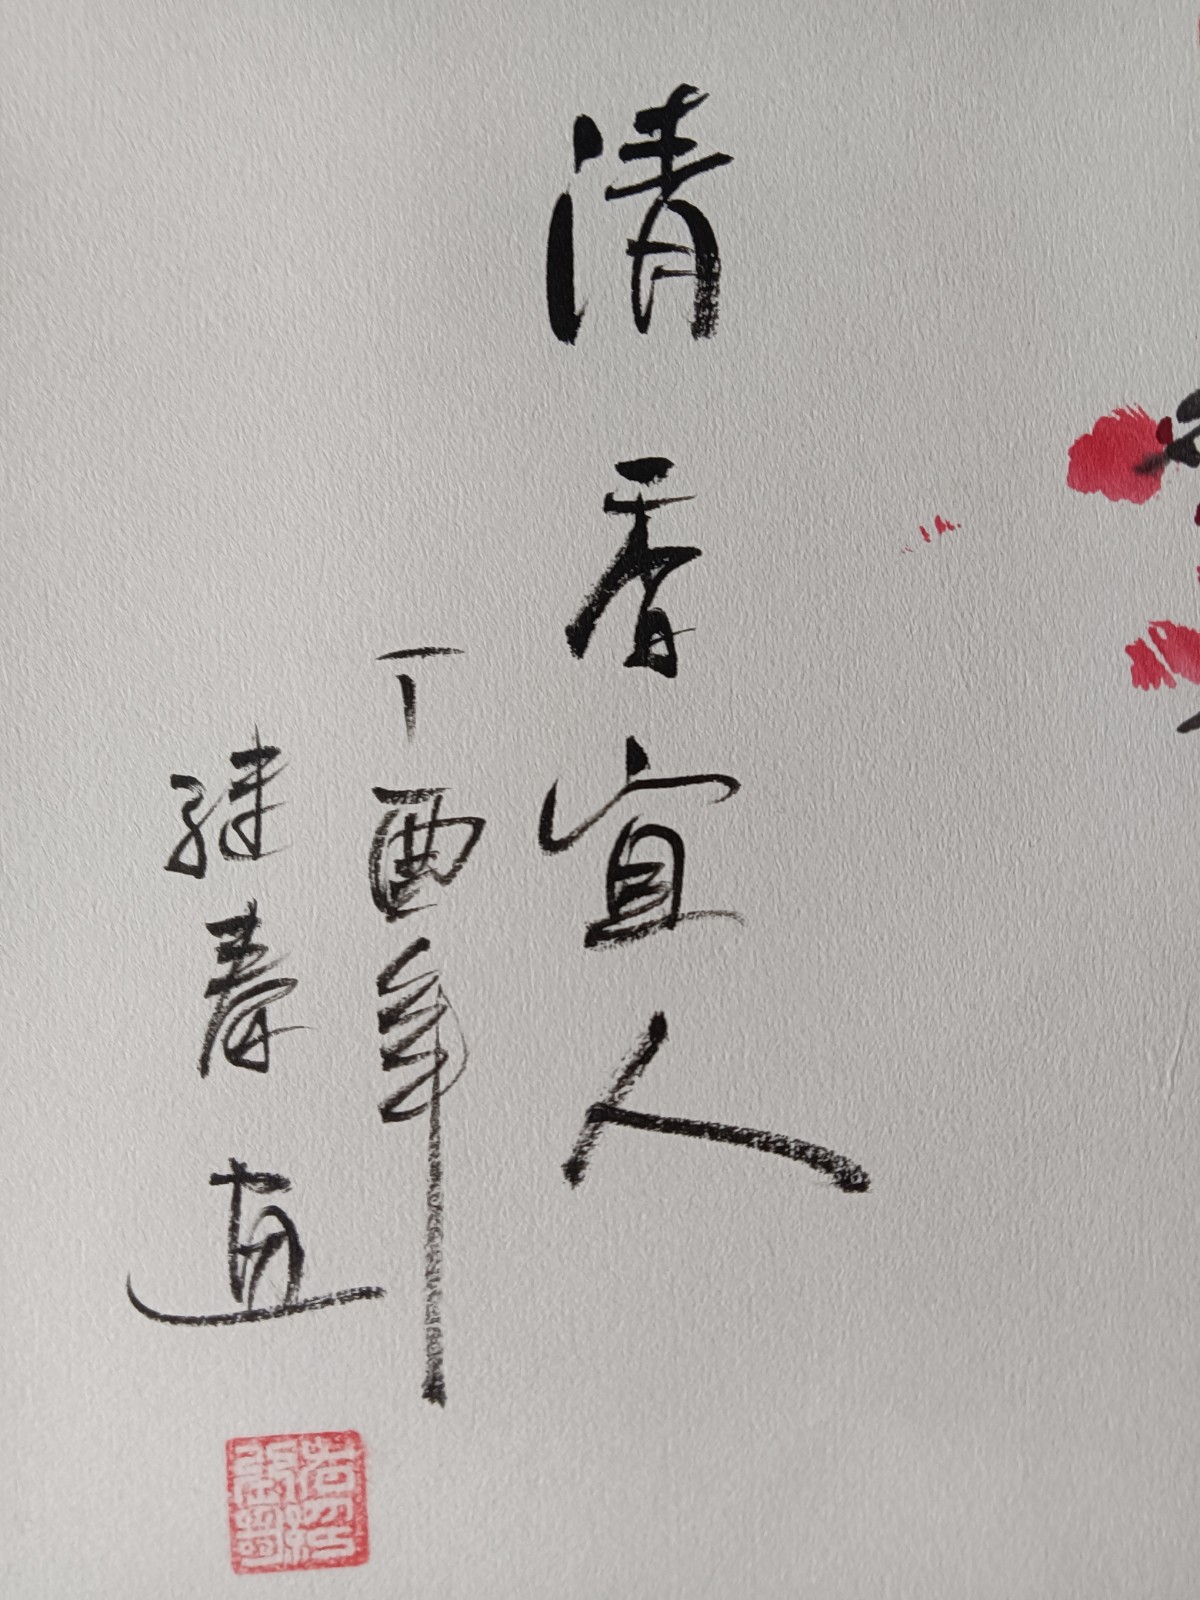 清香宜人
丁酉年
春画